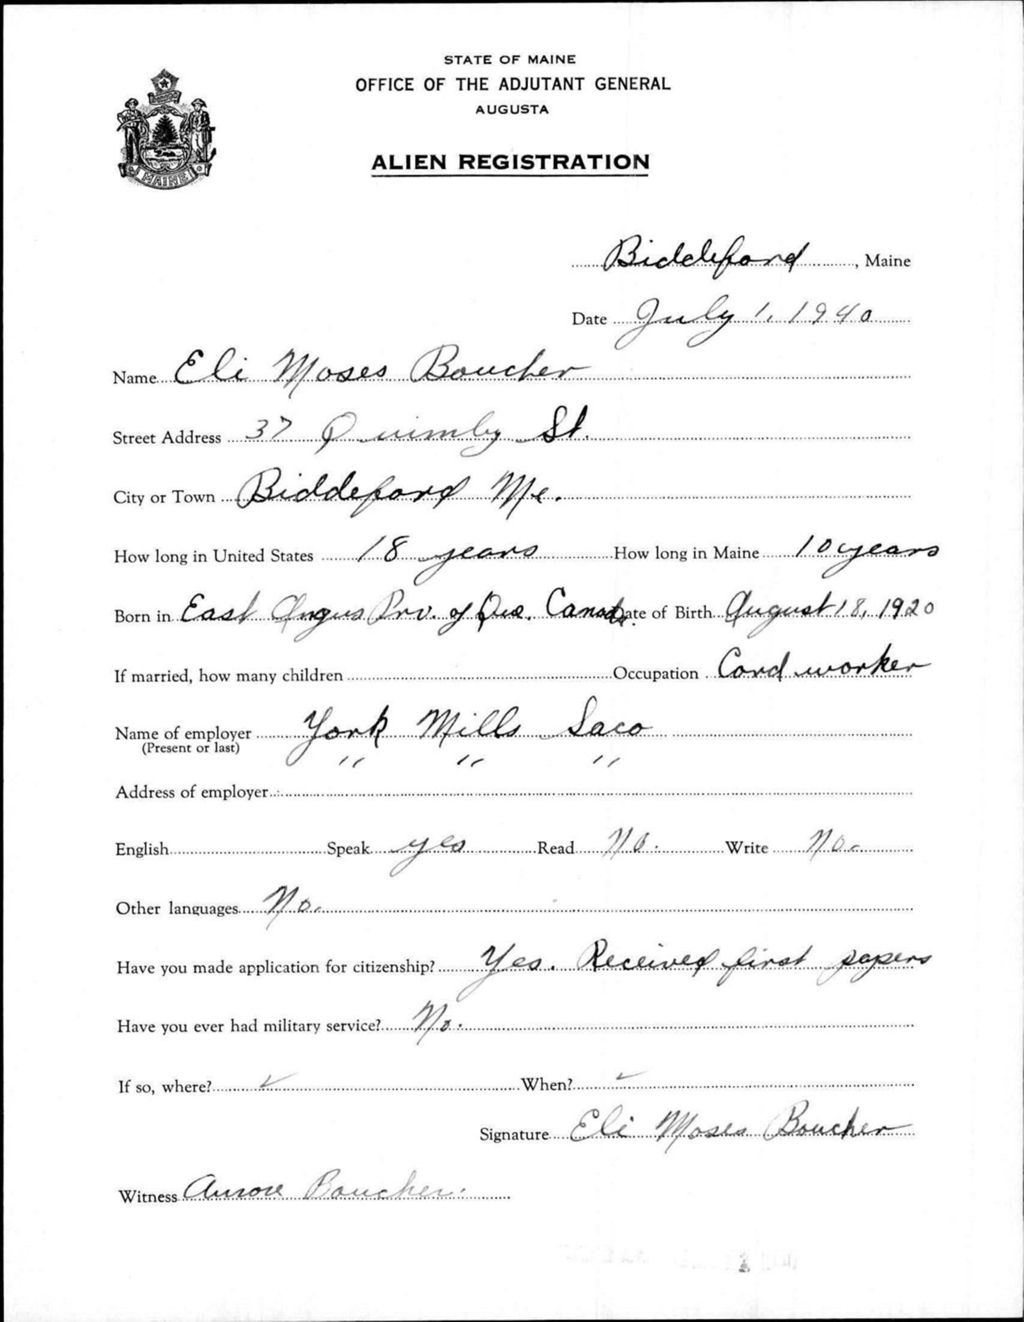 STATE OF MAINE
OFFICE OF THE ADJUTANT GENERAL
AUGUSTA
MAINE
ALIEN REGISTRATION
Biddeford, Maine
Date July 1, 1940
Name Eli Moses Boucher
Street Address 37 Quimby St.
City or Town Biddeford Me.
How long in United States 18 years How long in Maine 10 years
Born in East Angus Prv. of Que. Canada. Date of Birth August 18, 1920
If married, how many children Occupation Card worker
Name of employer York Mills Saco
(Present or last)
" " "
Address of employer
English Speak yes Read No. Write No.
Other languages No.
Have you made application for citizenship? Yes. Received first papers
Have you ever had military service? No.
If so, where? ✓ When? ✓
Signature Eli Moses Boucher
Witness Aurore Boucher.